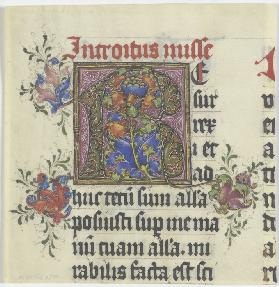 Introitus misse
R E
sur
rex
i et
ad
huc tecu sum alla
posuisti sup me ma
nu tuam alla. mi
rabilis facta est sci